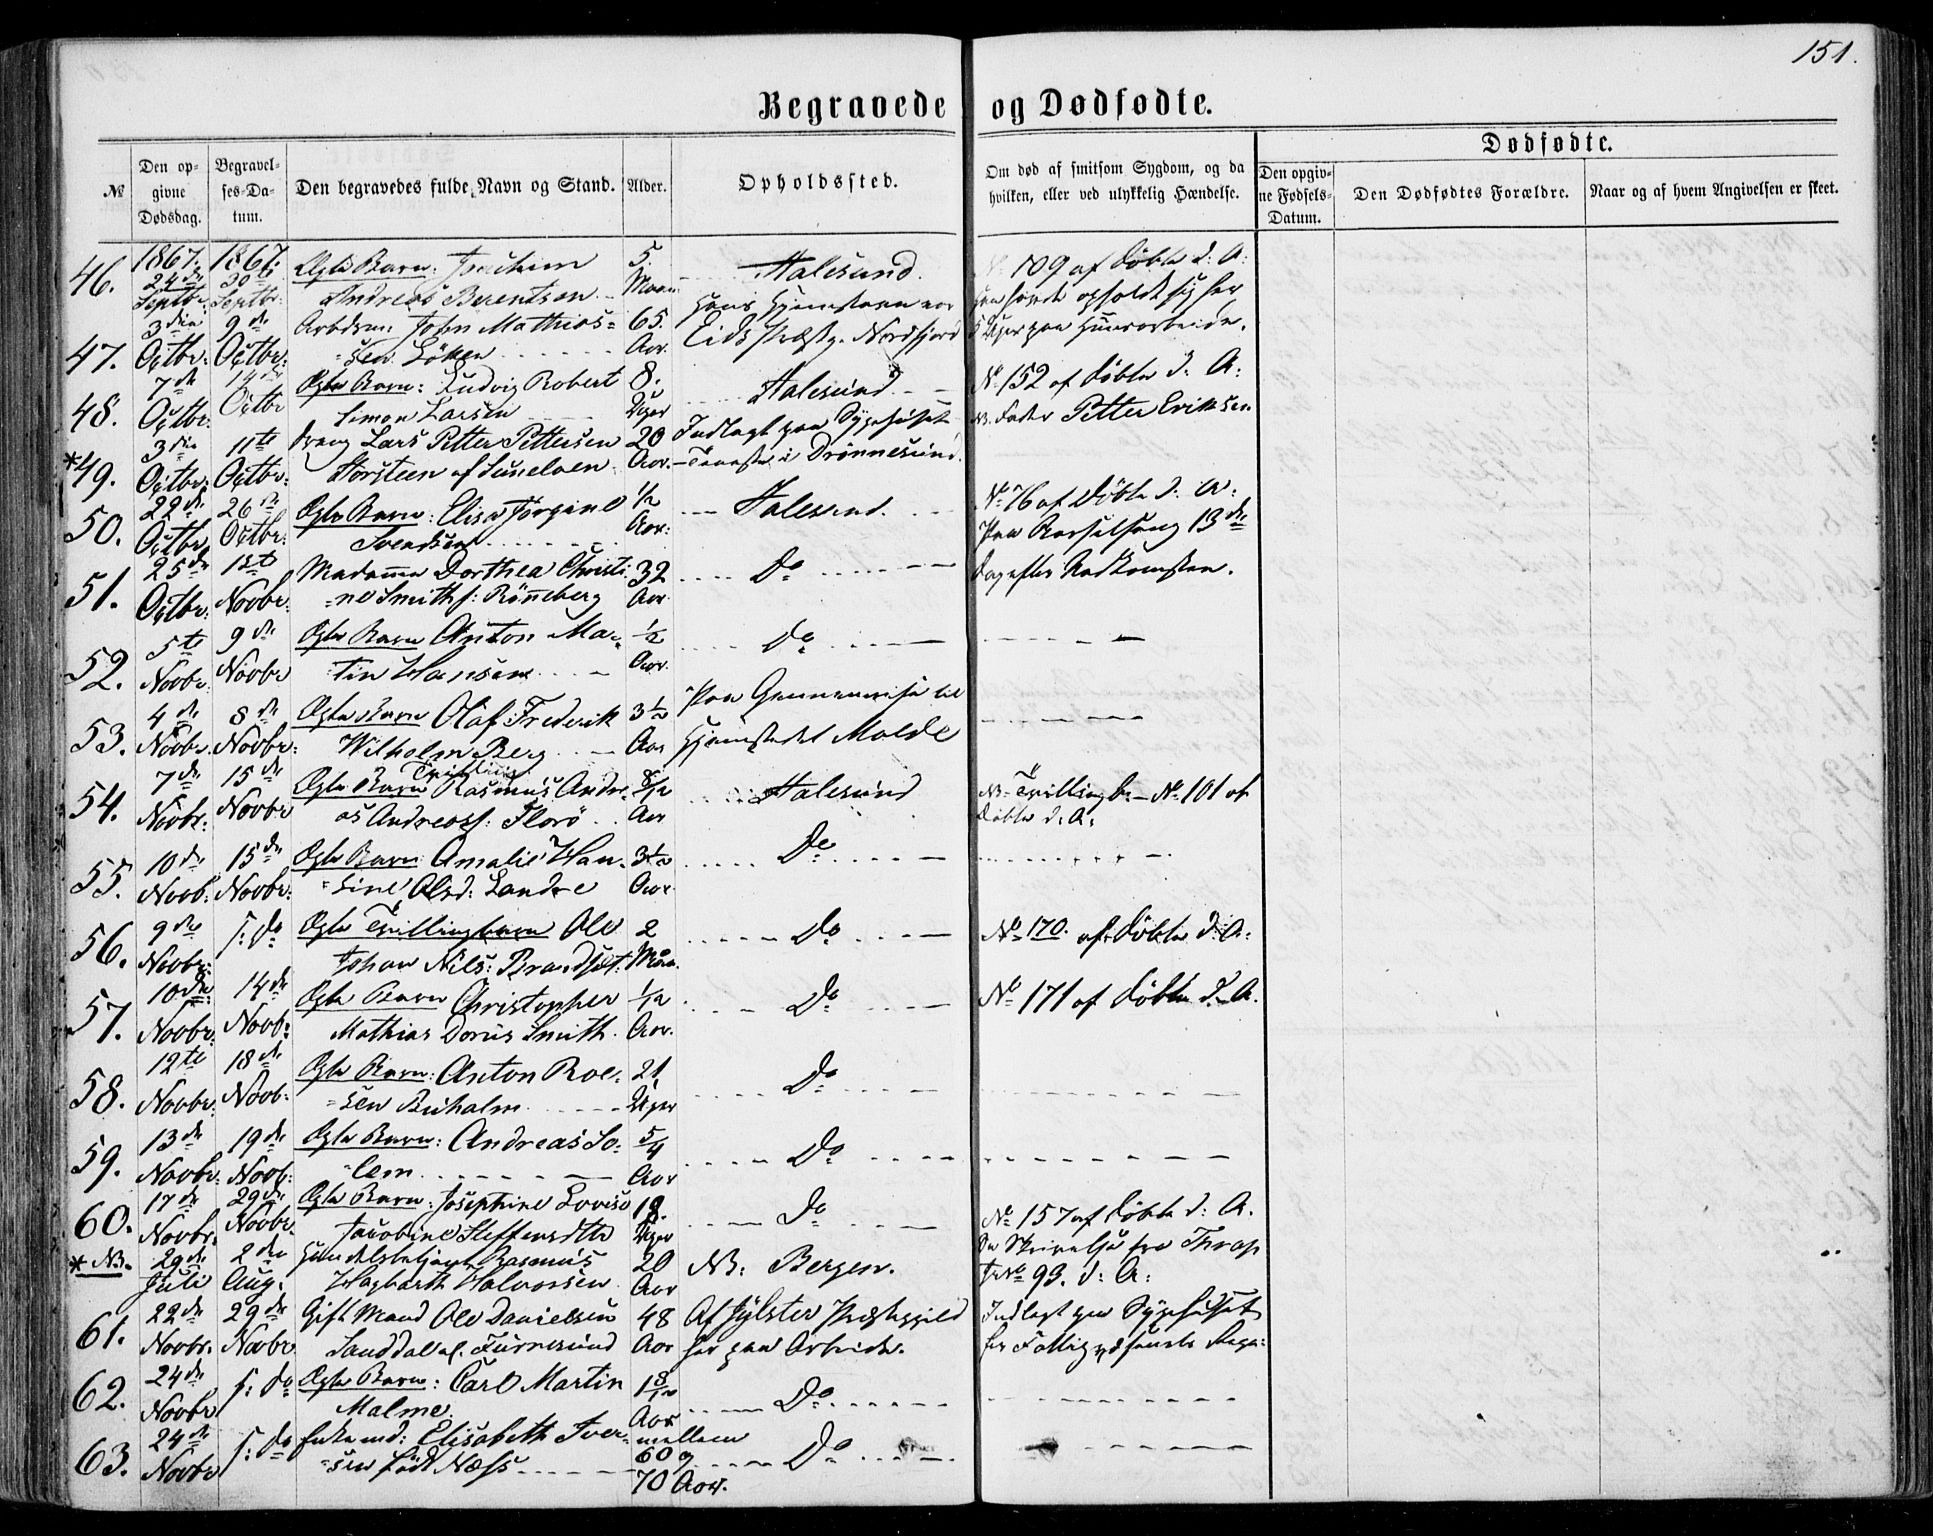 151.
Begravede og Dødfødte.
№
Den opgivne Dødsdag.
Begravelses-Datum.
Den begravedes fulde Navn og Stand.
Alder.
Opholdssted.
Om død af smitsom Sygdom, og da hvilken, eller ved ulykkelig Hændelse.
Dødfødte.
Den opgivne Fødsels-Datum.
Den Dødfødtes Forældre.
Naar og af hvem Angivelsen er skeet.
1867. 1867.
46. 24de Septbr: 30te Septbr: Ægte Barn: Joachim
Andreas Berentsen 5. Maan: Aalesund. № 109 af Døbte d: A:
47. 3die Octbr: 9de Octbr: Arbdsm: John Mathias-
sen Löken 65. Aar. Hans Hjemstavn var
Eids Præstg. Nordfjord
5 Uger paa Huusarbeide.
48. 7de Octbr: 14de Octbr Ægte Barn: Ludvig Robert
Simon Larsen 8. Uger Aalesund № 152 af Døbte d: A:
NB. Fader Petter Eriksen
*49. 3die Octbr: 11te Octbr: Dreng Lars Petter Pettersen
Korsteen af Sunelven 20 Aar. Indlagt paa Sygehuset
Tjeneste i Drønnesund.
50. 22de Octbr 26de Octbr: Ægte Barn: Elisa Jörgine
Svendsen ½ Aar. Aalesund. № 76 af Döbte d: A:
51. 25de Octbr: 1ste Novbr: Madame Dorthea Christi-
ne Smith f: Rönneberg 32 Aar. Do Paa Barselseng 13de
Dag efter Nedkomsten.
52. 5te Novbr. 9de Novbr Ægte Barn Anton Mar-
tin Hansen ½ Aar. Do
53. 4de Novbr. 8de Novbr: Ægte Barn Olaf Fredrik
Wilhelm Berg 3½ Aar Paa Gjennemreise til
Hjemstedet Molde
54. 7de Novbr: 15de Novbr Ægte Barn Tvilling Rasmus Andre-
as Andreass: Florö 8/12 Aar Aalesund NB. Tvillingb: № 101 af
Döbte d: A:
55. 10de Novb: 15de Novbr: Ægte Barn Amalie Han-
sine Olsd: Landre 3½ Aar. Do
56. 9de Novbr: s: Do Ægte Tvillingbarn Ole
Johan Nils: Brandsæt: 2 Maan. Do № 170. af Döbte d: A:
57. 10de Novbr: 14de Novb: Ægte Barn Christopher
Mathias Dorus Smith. 1/12 Aar. Do № 171 af Döbte d: A.
58. 12te Novbr: 18de Novb: Ægte Barn: Anton Roe-
sen Buholm 21. Uger Do
59. 13de Novbr. 19de Novb: Ægte Barn: Andreas So-
lem 5/4 Aar Do
60. 17de Novbr. 29de Novbr. Ægte Barn: Josephine Lovise
Jacobine Steffensdtr 18. Uger Do № 157 af Döbte d: A.
* NB. 29de Juli 2den Aug: Handelsbetjent Rasmus
Hagbarth Halvorsen 20 Aar NB: Bergen. Se Skrivelse fra Thrap
Jr№ 93. d: A:
61. 22de Novbr. 29de Novbr Gift Mand Ole Danielsen
Sanddal af Furnesund 48 Aar Af Jölster Præstegjeld
her paa Arbeide. Indlagt paa Sygehuset
for Fattigvæsenets Regn:
62. 24de Novbr s: Do Ægte Barn: Carl Martin
Malme. Aar Do
63. 24de Novbr s: Do Enkemd: Elisabeth Iver-
sen född Næss mellem 60 og 70 Aar. Do